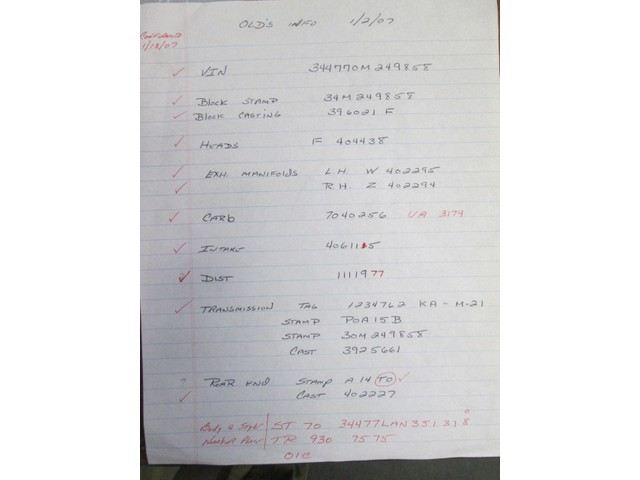 OLD'S INFO 1/2/07
Confirmed
1/13/07
✓ VIN 344770M249858
✓ Block STAMP 34M249858
✓ Block CASTING 396021 F
✓ HEADS F 404438
✓ EXH. MANIFOLDS L.H. W 402295
✓ R.H. Z 402294
✓ CARB 7040256 UA 3179
✓ INTAKE 406115
✓ DIST 1111977
✓ TRANSMISSION TAG 1234762 KA - M-21
STAMP POA15B
STAMP 30M249858
CAST 3925661
? REAR END STAMP A 14 TO ✓
✓ CAST 402227
Body & ST 70 34477LAN351318
TR 930 7575
01C